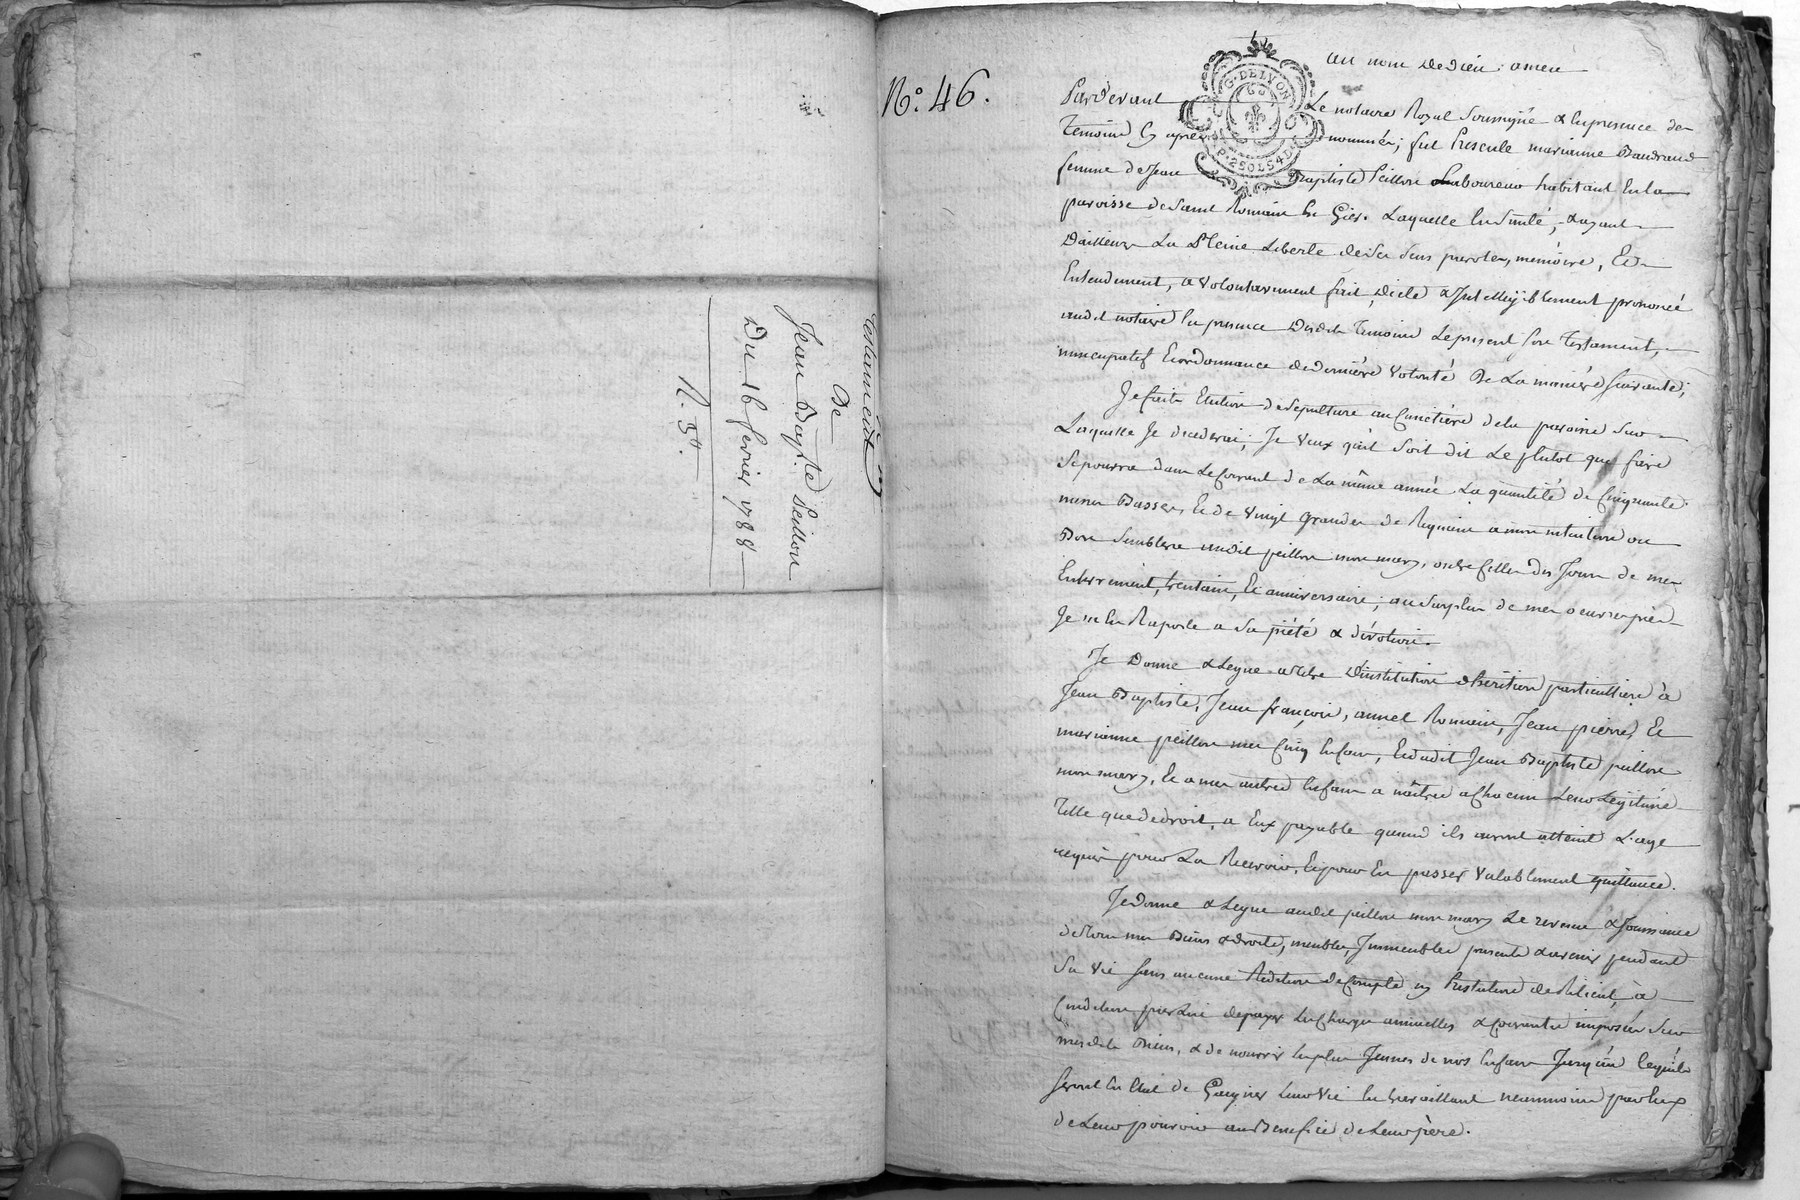 Testament
De
Jean Bapt.te Peillon
Du 16 fevrier 1788
N. 3.
N.o 46.
au nom de dieu amen
G. DE LYON
P. 2 SOLS 4 D.
Pardevant Le notaire Royal Soussigné & En presence des
Temoins Cy apres nommés; fut Presente marianne Baudrand
femme de Jean Baptiste Peillon Laboureur habitant En la
paroisse de Saint Romain En Gier. Laquelle En Santé, & ayant
Dailleurs La Pleine Liberté de Ses Sens parole, mémoire, Et
Entendement, a volontairement fait, dicté & Intelligiblement prononcé
audit notaire En presence Desdits Temoins Le present Son Testament,
nuncupatif Et ordonnance de derniére volonté De La maniére Suivante;
Je fais Election de Sepulture au Cimetiére de la paroisse Sur
Laquelle Je decederai; Je veux qu'il Soit dit Le plutot que faire
Se pourra dans Le Courant de La même année La quantité de Cinquante
messes Basses, Et de vingt Grandes de Requiem a mon intention ou
Bon Semblera audit peillon mon mary, outre Celles des Jours de mes
Enterrement, trentaine, Et anniversaire; au Surplus de mes oeuvres pies
Je m'En Raporte a Sa piété & dévotion.
Je Donne & Legue a titre D'institution & heritiere particulliere à
Jean Baptiste, Jean françois, annet Romain, Jean pierre, Et
marianne peillon mes Cinq Enfans, Et audit Jean Baptiste peillon
mon mary, Et a mes autres Enfans a naître a Chacun Leur Legitime
Telle que de droit, a Eux payable quand ils auront atteint L'age
requis pour La Recevoir, Et pour En passer valablement quittance.
Je donne & Legue audit peillon mon mary Le revenu & Jouissance
de tous mes Biens & droits, meubles, Immeubles presents & avenir pendant
Sa vie Sans aucune Redition de Compte ny Prestation de Reliquat, à
Condition par Lui de payer Les Charges annuelles & Courantes imposées Sur
mesdits Biens, & de nourrir Les plus Jeunes de nos Enfans Jusqu'à Ce qu'ils
Seront En Etat de Gaigner Leur vie En travaillant neanmoins par Eux
de Leur pouvoir au Benefice de Leur père.